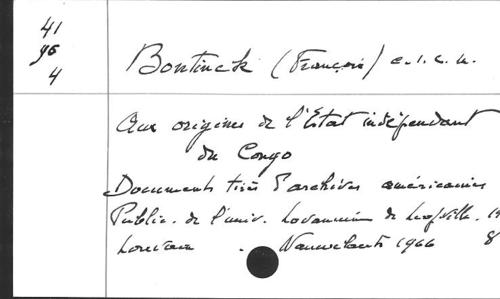 41
96
4
Bontinck (François) c.i.c.m.
Aux origines de l'Etat indépendant
du Congo
Documents tirés d'archives américaines
Public. de l'univ. Lovanium de Léopoldville. 15
Louvain . Nauwelaerts 1966 8